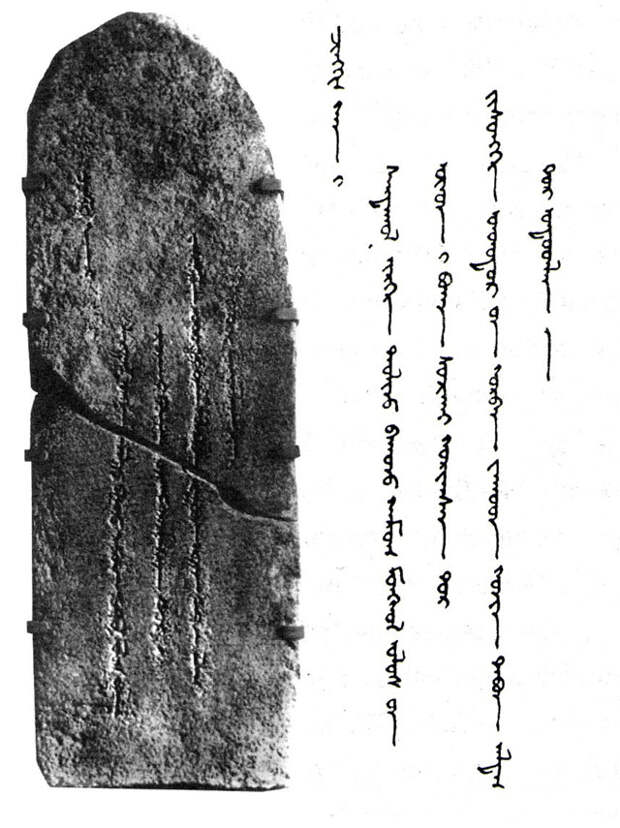 ᠴᠢᠩᠭᠢᠰ ᠬᠠᠨ ᠢ
ᠰᠠᠷᠲᠠᠭᠤᠯ ᠢᠷᠭᠡ ᠳᠠᠭᠤᠯᠢᠵᠤ ᠪᠠᠭᠤᠵᠤ ᠬᠠᠮᠤᠭ ᠮᠣᠩᠭᠣᠯ ᠤᠯᠤᠰ ᠤᠨ
ᠨᠣᠶᠠᠳ ᠢ ᠪᠤᠬᠠ ᠰᠤᠴᠢᠭᠠᠢ ᠬᠤᠷᠢᠭᠰᠠᠨ ᠳᠤᠷ
ᠶᠢᠰᠦᠩᠭᠡ ᠣᠨᠲᠤᠳᠤᠷᠤᠨ ᠭᠤᠷᠪᠠᠨ ᠵᠠᠭᠤᠳ ᠭᠤᠴᠢᠨ ᠲᠠᠪᠤᠨ ᠠᠯᠳᠠᠰ
ᠲᠤᠷ ᠣᠨᠲᠤᠳᠤᠯᠠᠭ᠎ᠠ